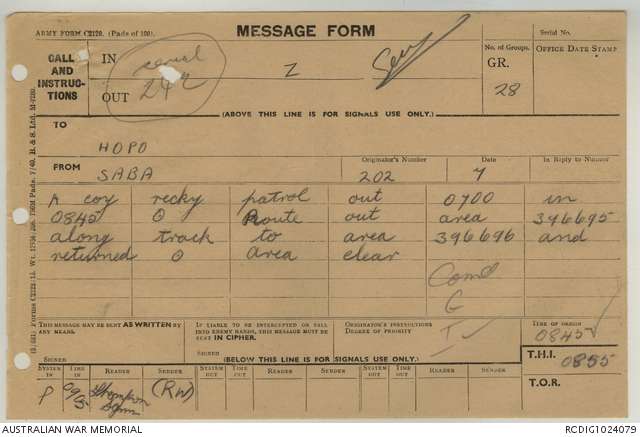 ARMY FORM C2128. (Pads of 100).
MESSAGE FORM
Serial No.
CALL AND INSTRUCTIONS
IN
OUT
serial
242
Z
No. of Groups.
GR.
28
OFFICE DATE STAMP
(ABOVE THIS LINE IS FOR SIGNALS USE ONLY.)
TO
HOPO
FROM
SABA
Originator's Number
202
Date
7
In Reply to Number
A coy recky patrol out 0700 in
0845 O Route out area 396695
along track to area 396696 and
returned O area clear
Comd
G
I
THIS MESSAGE MAY BE SENT AS WRITTEN BY ANY MEANS.
SIGNED
IF LIABLE TO BE INTERCEPTED OR FALL INTO ENEMY HANDS, THIS MESSAGE MUST BE SENT IN CIPHER.
SIGNED
ORIGINATOR'S INSTRUCTIONS DEGREE OF PRIORITY
TIME OF ORIGIN
0845
(BELOW THIS LINE IS FOR SIGNALS USE ONLY.)
T.H.I. 0855
T.O.R.
SYSTEM IN TIME IN READER SENDER SYSTEM OUT TIME OUT READER SENDER SYSTEM OUT TIME OUT READER SENDER
P Thompson (RW)
AUSTRALIAN WAR MEMORIAL
RCDIG1024079